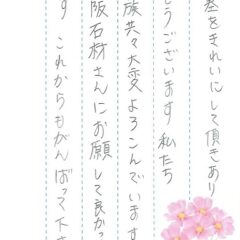 墓をきれいにして頂きあり
とうございます 私たち
族共々大変よろこんでいます
阪石材さんにお願して良かっ
す これからもがんばって下さ